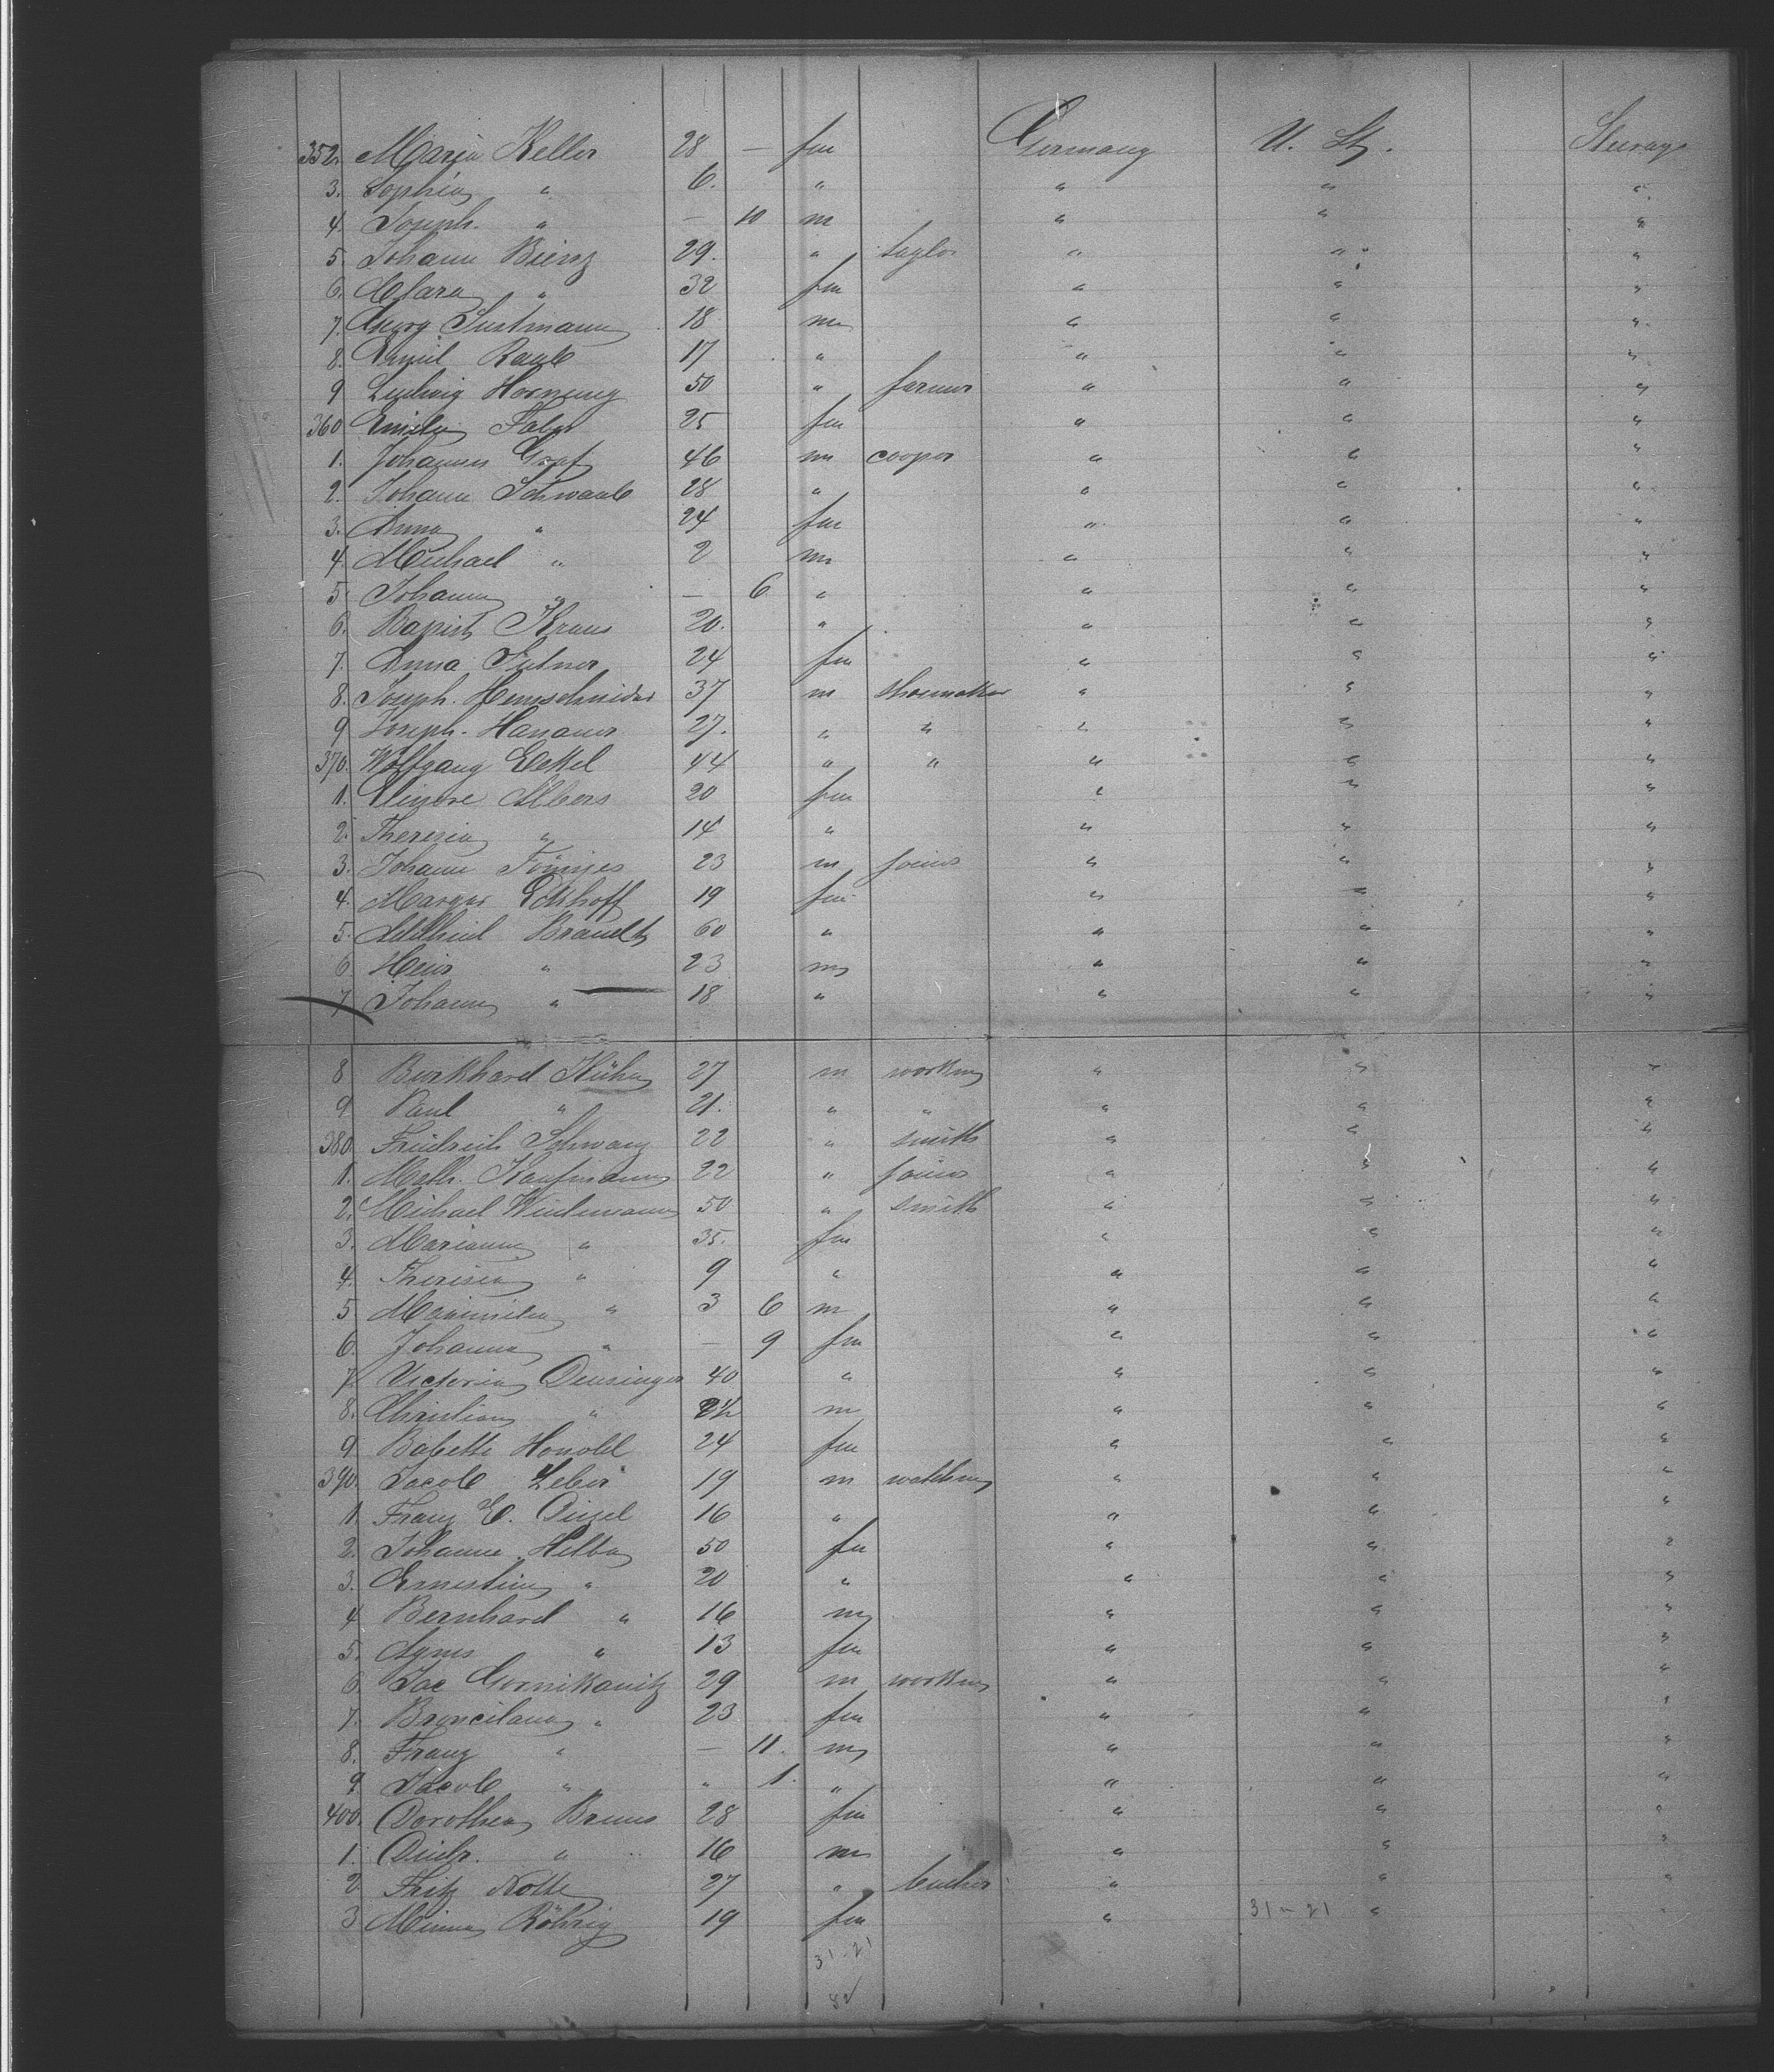 352. Maria Keller 28 — fm Germany U. St. Steerage
3. Sophia " 6. " " " "
4. Joseph. " — 10 m " " "
5. Johann Bierz 29. " taylor " " "
6. Clara " 32 fm " " "
7. Georg 18 m " " "
8. Emil Raub 17 " " " "
9 Ludwig Hornung 50 " farmer " " "
360 Emilie Faber 25 fm " " "
1. Johannes Graf 46 m cooper " " "
2. Johann Schwaab 28 " " " "
3. Anna " 24 fm " " "
4 Michael " 2 m " " "
5 Johann " — 6 " " " "
6. Bapist Kraus 20. " " " "
7. Anna 24 fm " " "
8. Joseph. Hemschneider 37 m shoemaker " " "
9 Joseph. Hanauer 27. " " " " "
370. Wolfgang Eckel 44 " " " " "
1. Albers 20 fm " " "
2. Theresia " 14 " " " "
3. Johann Tönnjes 23 m joiner " " "
4. Margar Eckhoff 19 fm " " "
5. Adelheid Brandt 60 " " " "
6 Heinr " 23 m " " "
7 Johann " 18 " " " "
8 Burkhard Kühn 27 m workm " " "
9 Paul " 21. " " " " "
380 Friedrich Schwarz 22 " smith " " "
1. Math. Kaufmann 22 " joiner " " "
2. Michael Windemann 50 " smith " " "
3. Marianna " 35. fm " " "
4. Theresia " 9 " " " "
5 Maximilian " 3 6 m " " "
6. Johanna " — 9 fm " " "
7. Victoria Deusinger 40 " " " "
8. Christian " m " " "
9 Babette Honold 24 fm " " "
390. Jacob 19 m watchm " " "
1. Franz E. Diesel 16 " " " "
2. Johanne Helba 50 fm " " "
3. Ernestine " 20 " " " "
4 Bernhard " 16 m " " "
5. Agnes " 13 fm " " "
6. Jac Gornikawitz 29 m workm " " "
7. " 23 fm " " "
8. Franz " — 11. m " " "
9 Jacob " " 1. " " " "
400. Dorothea Bruns 28 fm " " "
1. Diedr. " 16 m " " "
2 Fritz Nolte 27 " butcher " " "
3 Minna Röhrig 19 fm " 31–21 " "
31–21